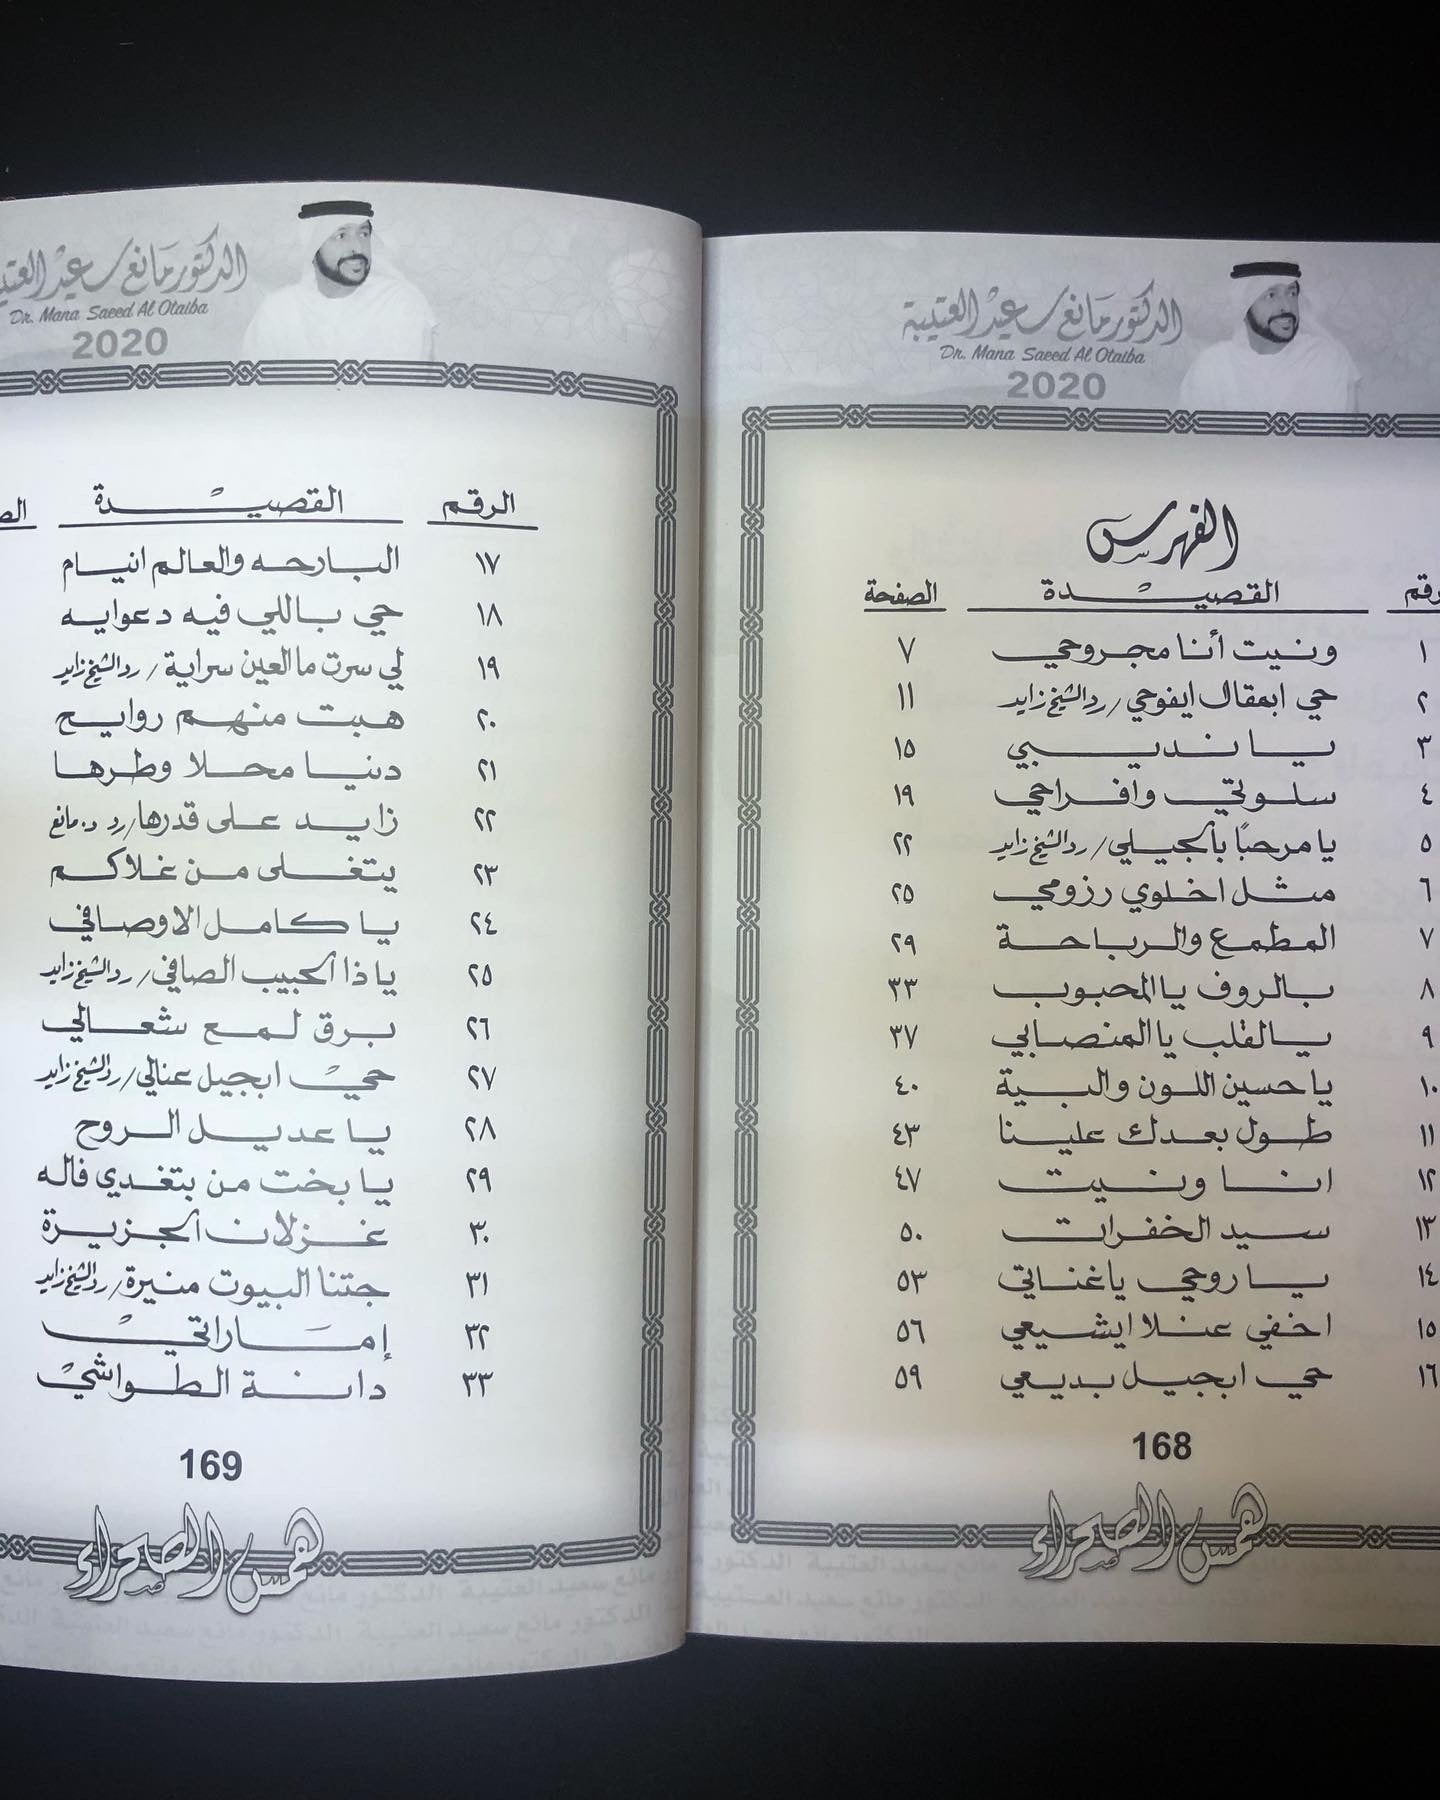 الدكتور مانع سعيد العتيبة
Dr. Mana Saeed Al Otaiba
2020
الفهرس
رقم القصيدة الصفحة
١ ونيت أنا مجروحي ٧
٢ حي ابمقال ايفوحي / رد الشيخ زايد ١١
٣ يا نديبي ١٥
٤ سلوتي وافراحي ١٩
٥ يا مرحبًا بالجيلي / رد الشيخ زايد ٢٢
٦ مثل اخلوي رزومي ٢٥
٧ المطمع والرباحة ٢٩
٨ بالروف يا المحبوب ٣٣
٩ يالقلب يا المنصابي ٣٧
١٠ يا حسين اللون والبية ٤٠
١١ طول بعدك علينا ٤٣
١٢ انا ونيت ٤٧
١٣ سيد الخفرات ٥٠
١٤ يا روحي يا غناتي ٥٣
١٥ اخفي عنلا ايشيعي ٥٦
١٦ حي ابجيل بديعي ٥٩
168
همس الصحراء
الدكتور مانع سعيد العتيبة
Dr. Mana Saeed Al Otaiba
2020
الرقم القصيدة
١٧ البارحه والعالم انيام
١٨ حي باللي فيه دعوايه
١٩ لي سرت ما العين سراية / رد الشيخ زايد
٢٠ هبت منهم روايح
٢١ دنيا محلا وطرها
٢٢ زايد على قدرها / رد د. مانع
٢٣ يتغلى من غلاكم
٢٤ يا كامل الاوصافي
٢٥ يا ذا الحبيب الصافي / رد الشيخ زايد
٢٦ برق لمع شعالي
٢٧ حيْ ابجيل عنالي / رد الشيخ زايد
٢٨ يا عديل الروح
٢٩ يا بخت من بتغدي فاله
٣٠ غزلان الجزيرة
٣١ جتنا البيوت منيرة / رد الشيخ زايد
٣٢ إماراتيْ
٣٣ دانة الطواشيْ
169
همس الصحراء